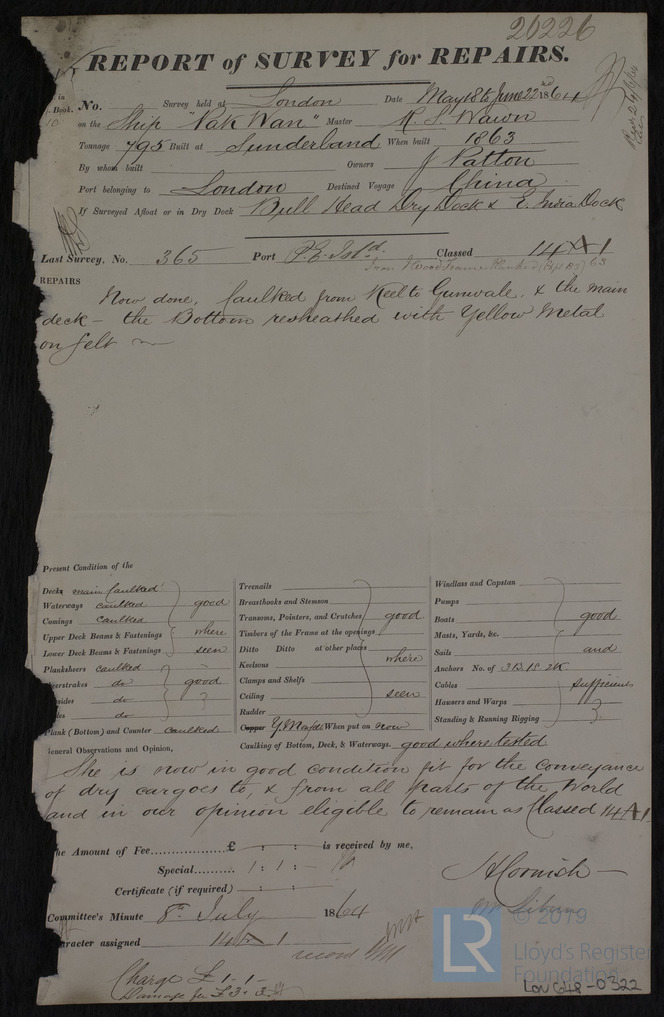 20226
REPORT of SURVEY for REPAIRS.
No. Survey held at London Date May 18 to June 22nd 1864
on the Ship "Nak Wan" Master R. S. Wawn
Tonnage 795 Built at Sunderland When built 1863
By whom built Owners J Patton
Port belonging to London Destined Voyage China
If Surveyed Afloat or in Dry Dock Bull Head Dry Dock & E. India Dock
Last Survey, No. 365 Port Classed 14 A 1
Iron & Wood Frame Planked 63
REPAIRS
Now done, Caulked from Keel to Gunwale, & the main
deck – the Bottom resheathed with Yellow Metal
on felt
Present Condition of the
Decks main Caulked
Waterways caulked good
Comings caulked
Upper Deck Beams & Fastenings where
Lower Deck Beams & Fastenings seen
Plansheers caulked
do good
do
do
Plank (Bottom) and Counter caulked
Treenails
Breasthooks and Stemson
Transoms, Pointers, and Crutches good
Timbers of the Frame at the openings
Ditto Ditto at other places where
Keelsons
Clamps and Shelfs
Ceiling seen
Rudder
Copper Y Metal When put on now
Caulking of Bottom, Deck, & Waterways. good where tested
Windlass and Capstan
Pumps
Boats good
Masts, Yards, &c.
Sails and
Anchors No. of 3B. 1S. 2K
Cables sufficient
Hawsers and Warps
Standing & Running Rigging
General Observations and Opinion,
She is now in good condition fit for the conveyance
of dry cargoes to, & from all parts of the World
and in our opinion eligible to remain as Classed 14 A 1
The Amount of Fee £ : : is received by me,
Special 1 : 1 :
Certificate (if required) : :
H Cornish
Committee's Minute 8th July 1864
Character assigned 14 A 1
record
Charge £ 1 . 1 . –
Damage fee £ 3 . 3 .
LR
© 2019
Lloyd's Register
Foundation
LON 648-0322